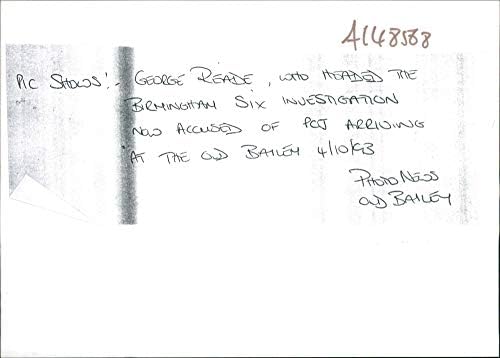 A1148588
PIC SHOWS:- GEORGE READE, WHO HEADED THE
BIRMINGHAM SIX INVESTIGATION
NOW ACCUSED OF PCJ ARRIVING
AT THE OLD BAILEY 4/10/93
PHOTO NEWS
OLD BAILEY